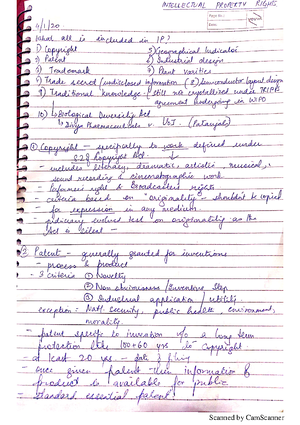 INTELLECTUAL PROPERTY RIGHTS
Page No.:
Date:
4/1/20
What all is included in IP?
1) Copyright 5) Geographical Indicator
2) Patent 6) Industrial design
3) Trademark 7) Plant varities
4) Trade secret/undisclosed information (8) Semiconductor layout design
9) Traditional knowledge - still not crystallized under TRIPS
agreement undergoing in WIPO
10) Biological Diversity Act
Divya Pharmaceuticals v UoI. (Patanjali)
① Copyright - specifically to work defined under
Copyright Act
- includes literary, dramatic, artistic, musical,
sound recording & cinematographic work
- Performers right & broadcasters rights
- criteria based on "originality" - shouldn't be copied
for expression in any medium
- judiciary evolved test on originality as the
Act is silent -
2. Patent - generally granted for inventions
- process & product
- 3 criteria ① Novelty
② Non obviousness / Inventive Step
③ Industrial application / utility
exception = Nat'l security, public health, environment,
morality
- patent specific to invention w/o a long term
protection like 100+60 yrs to Copyright
- at least 20 yrs - date of filing
- once given patent then information of
product is available for public
- standard essential patent
Scanned by CamScanner